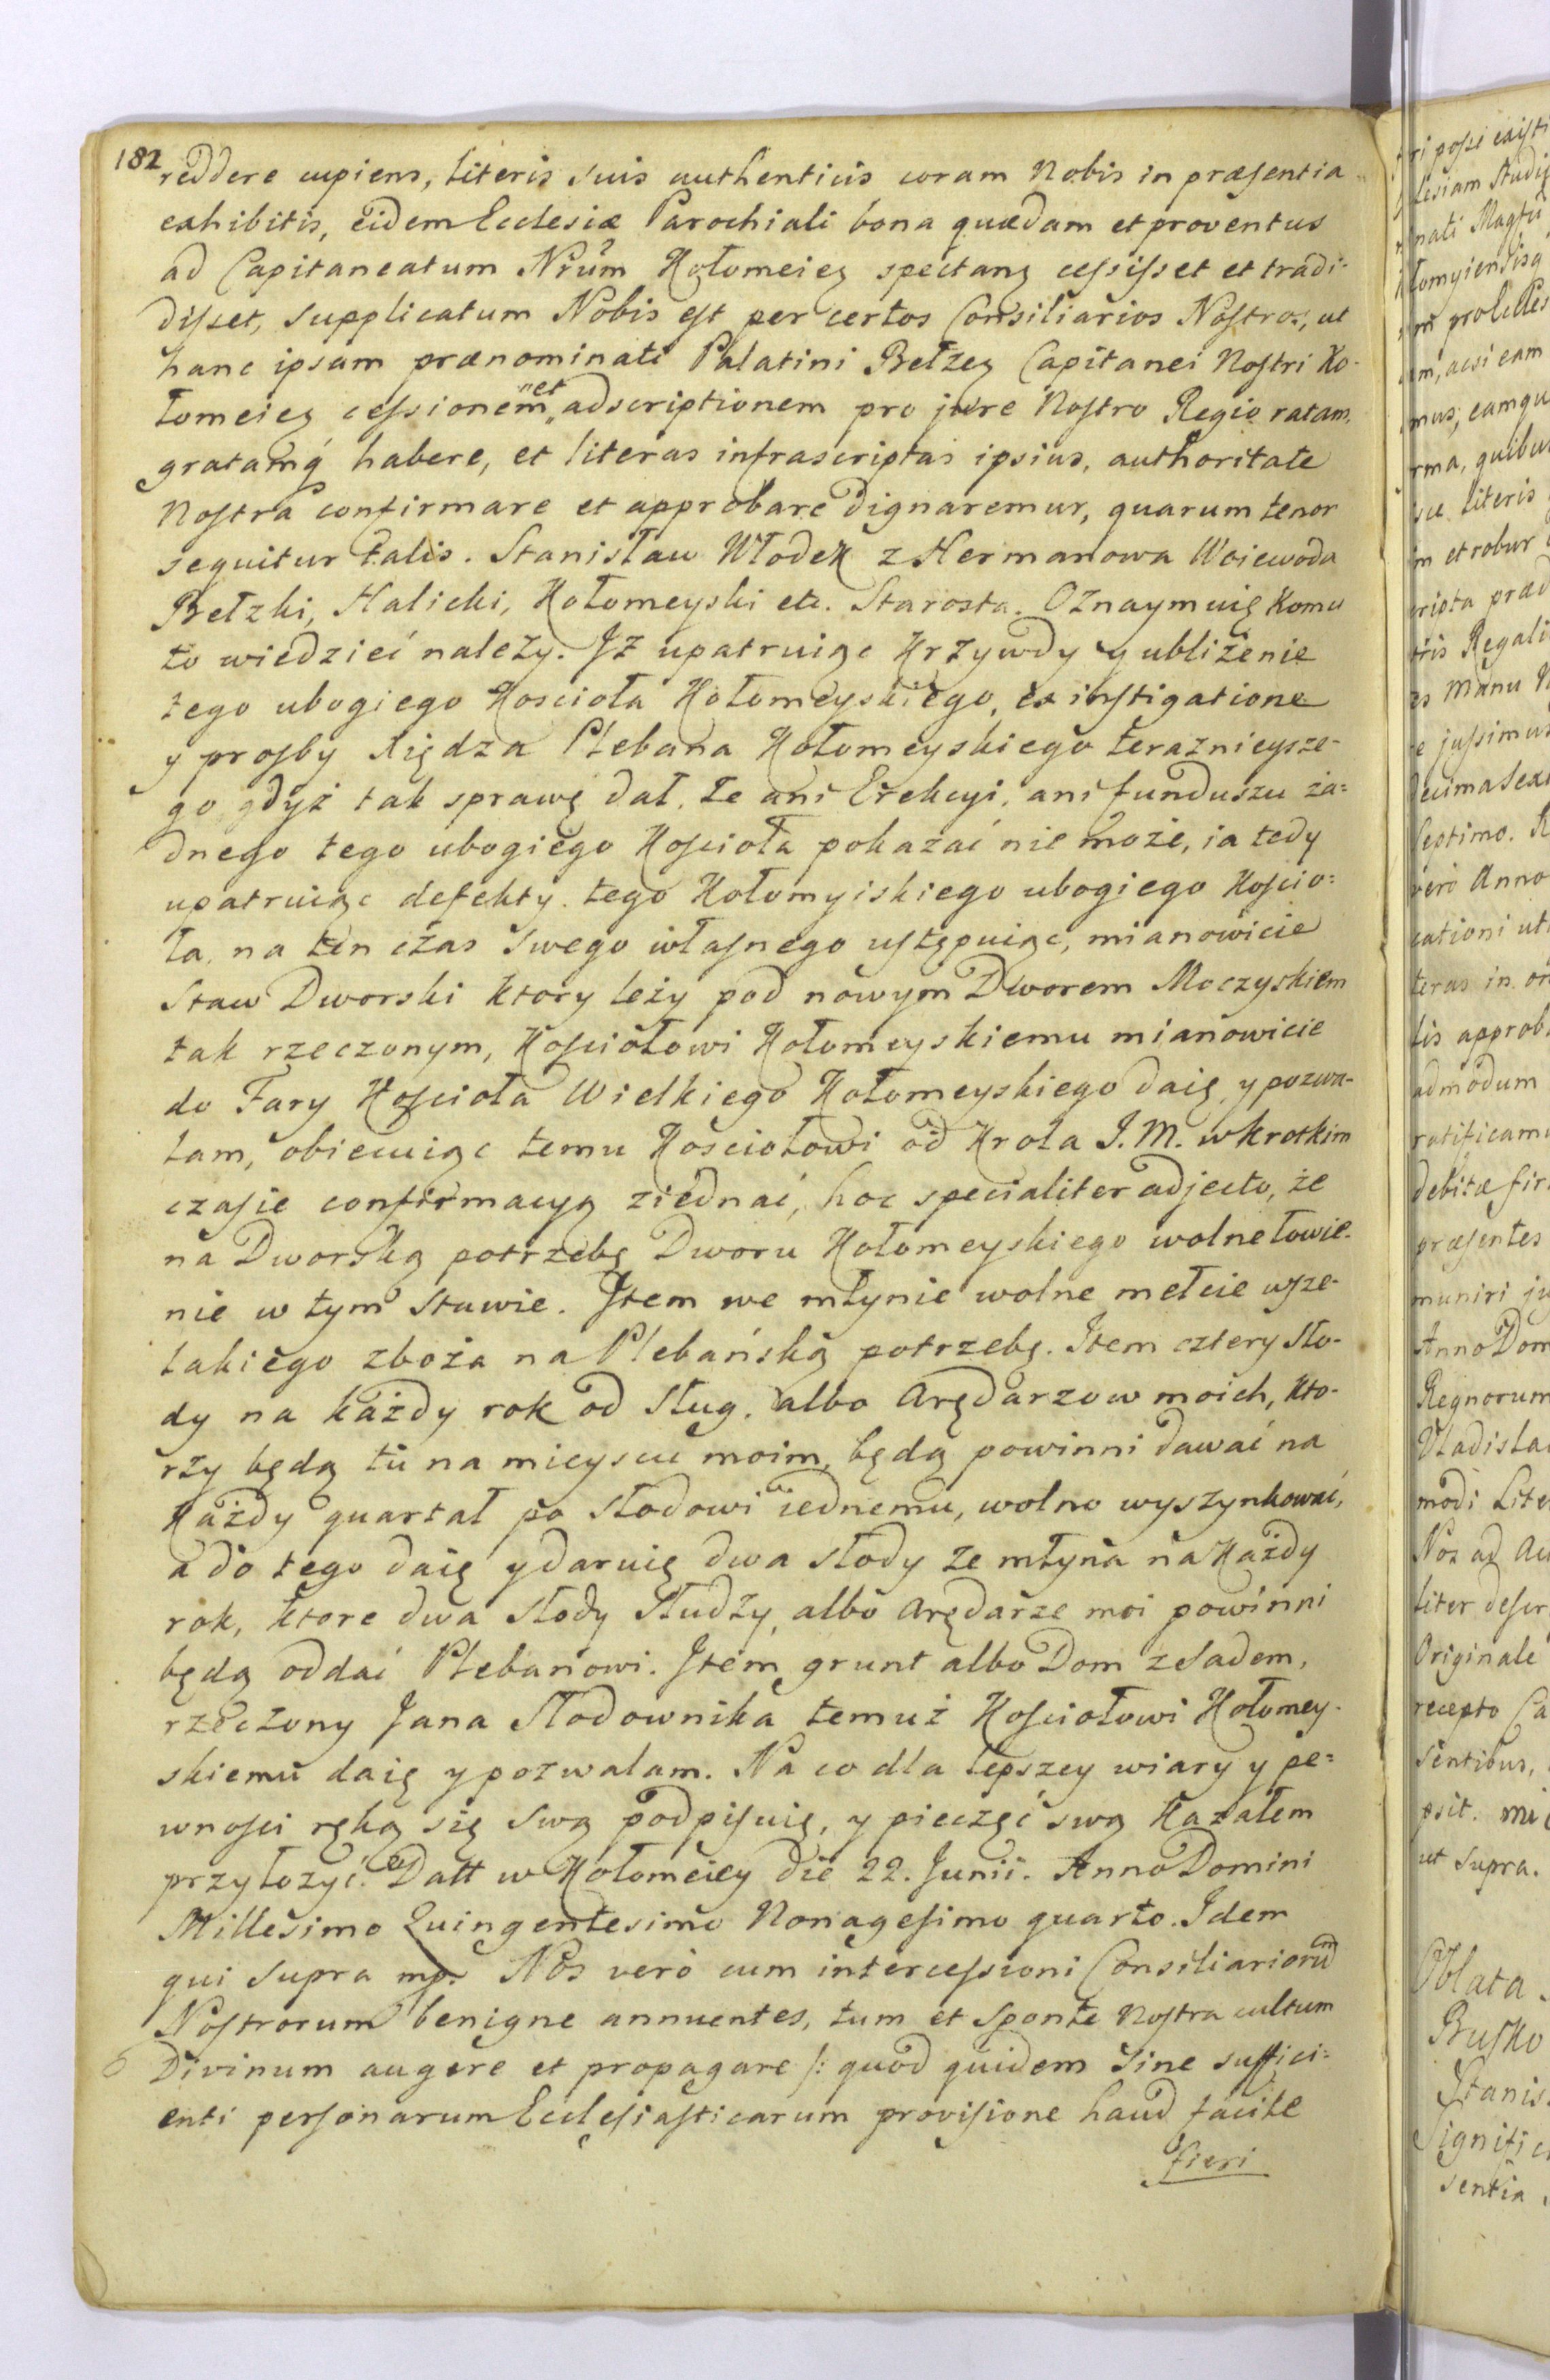 182
reddere cupiens, literis suis authenticis coram Nobis in præsentia
exhibitis, eidem Ecclesiæ Parochiali bona quædam et proventus
ad Capitaneatum Nrūm Kołomeieŋ spectanŋ cessisset et tradi-
disset, supplicatum Nobis est per certos Consiliarios Nostros, ut
hanc ipsam prænominati Palatini Bełzeŋ Capitanei Nostri Ko-
łomeieŋ cessionem et adscriptionem pro jure Nostro Regio ratam,
gratamq́ habere, et literas infrascriptas ipsius, authoritate
Nostra confirmare et approbare dignaremur, quarum tenor
sequitur talis. Stanisław Włodek z Hermanowa Woiewoda
Bełzki, Halicki, Kołomeyski etc. Starosta. Oznaymuię komu
to wiedzieć należy. Iż upatruiąc krzywdy y ubliżenie
tego ubogiego Kościoła Kołomeyskiego, ex instigatione
y prosby Xiędza Plebana Kołomeyskiego teraznieysze-
go, gdyż tak sprawę dał, że ani Erekcyi, ani funduszu ża=
dnego tego ubogiego Kościoła pokazać nie może, ia tedy
upatruiąc defekty tego Kołomyiskiego ubogiego Kościo=
ła, na ten czas swego własnego ustępuiąc, mianowicie
Staw Dworski ktory leży pod nowym Dworem Moczyskiem
tak rzeczonym, Kościołowi Kołomeyskiemu mianowicie
do Fary Kościoła Wielkiego Kołomeyskiego daię, y pozwa-
lam, obiecuiąc temu Kościołowi od Krola J. M. w krotkim
czasie confirmacyą ziednać, hoc specialiter adjecto, że
na Dworską potrzebę Dworu Kołomeyskiego wolne łowie-
nie w tym Stawie. Item we młynie wolne mełcie wsze-
lakiego zboża na Plebańską potrzebę. Item cztery Sło-
dy na każdy rok od Sług, albo Arędarzow moich, kto-
rzy będą tu na mieyscu moim, będą powinni dawać na
każdy quartał po Słodowi iednemu, wolno wyszynkować,
a do tego daię y daruię dwa słody ze młyna na każdy
rok, ktore dwa Słody Słudzy, albo Arędarze moi powinni
będą oddać Plebanowi. Item grunt albo Dom z Sadem,
rzeczony Jana Słodownika temuż Kościołowi Kołomey-
skiemu daię y pozwalam. Na co dla lepszey wiary y pe=
wności ręką się swą podpisuię, y pieczęć swą kazałem
przyłożyć. Datt w Kołomeiey die 22. Junii. Anno Domini
Millesimo Quingentesimo Nonagesimo quarto. Idem
qui supra mp. Nos verò cum intercessioni Consiliariorum
Nostrorum benigne annuentes, tum et sponte Nostra cultum
Divinum augere et propagare /: quod quidem sine suffici=
enti personarum Ecclesiasticarum provisione haud facile
fieri